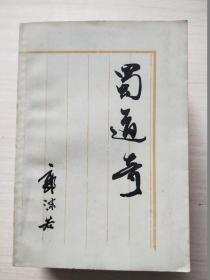 蜀道奇
郭沫若